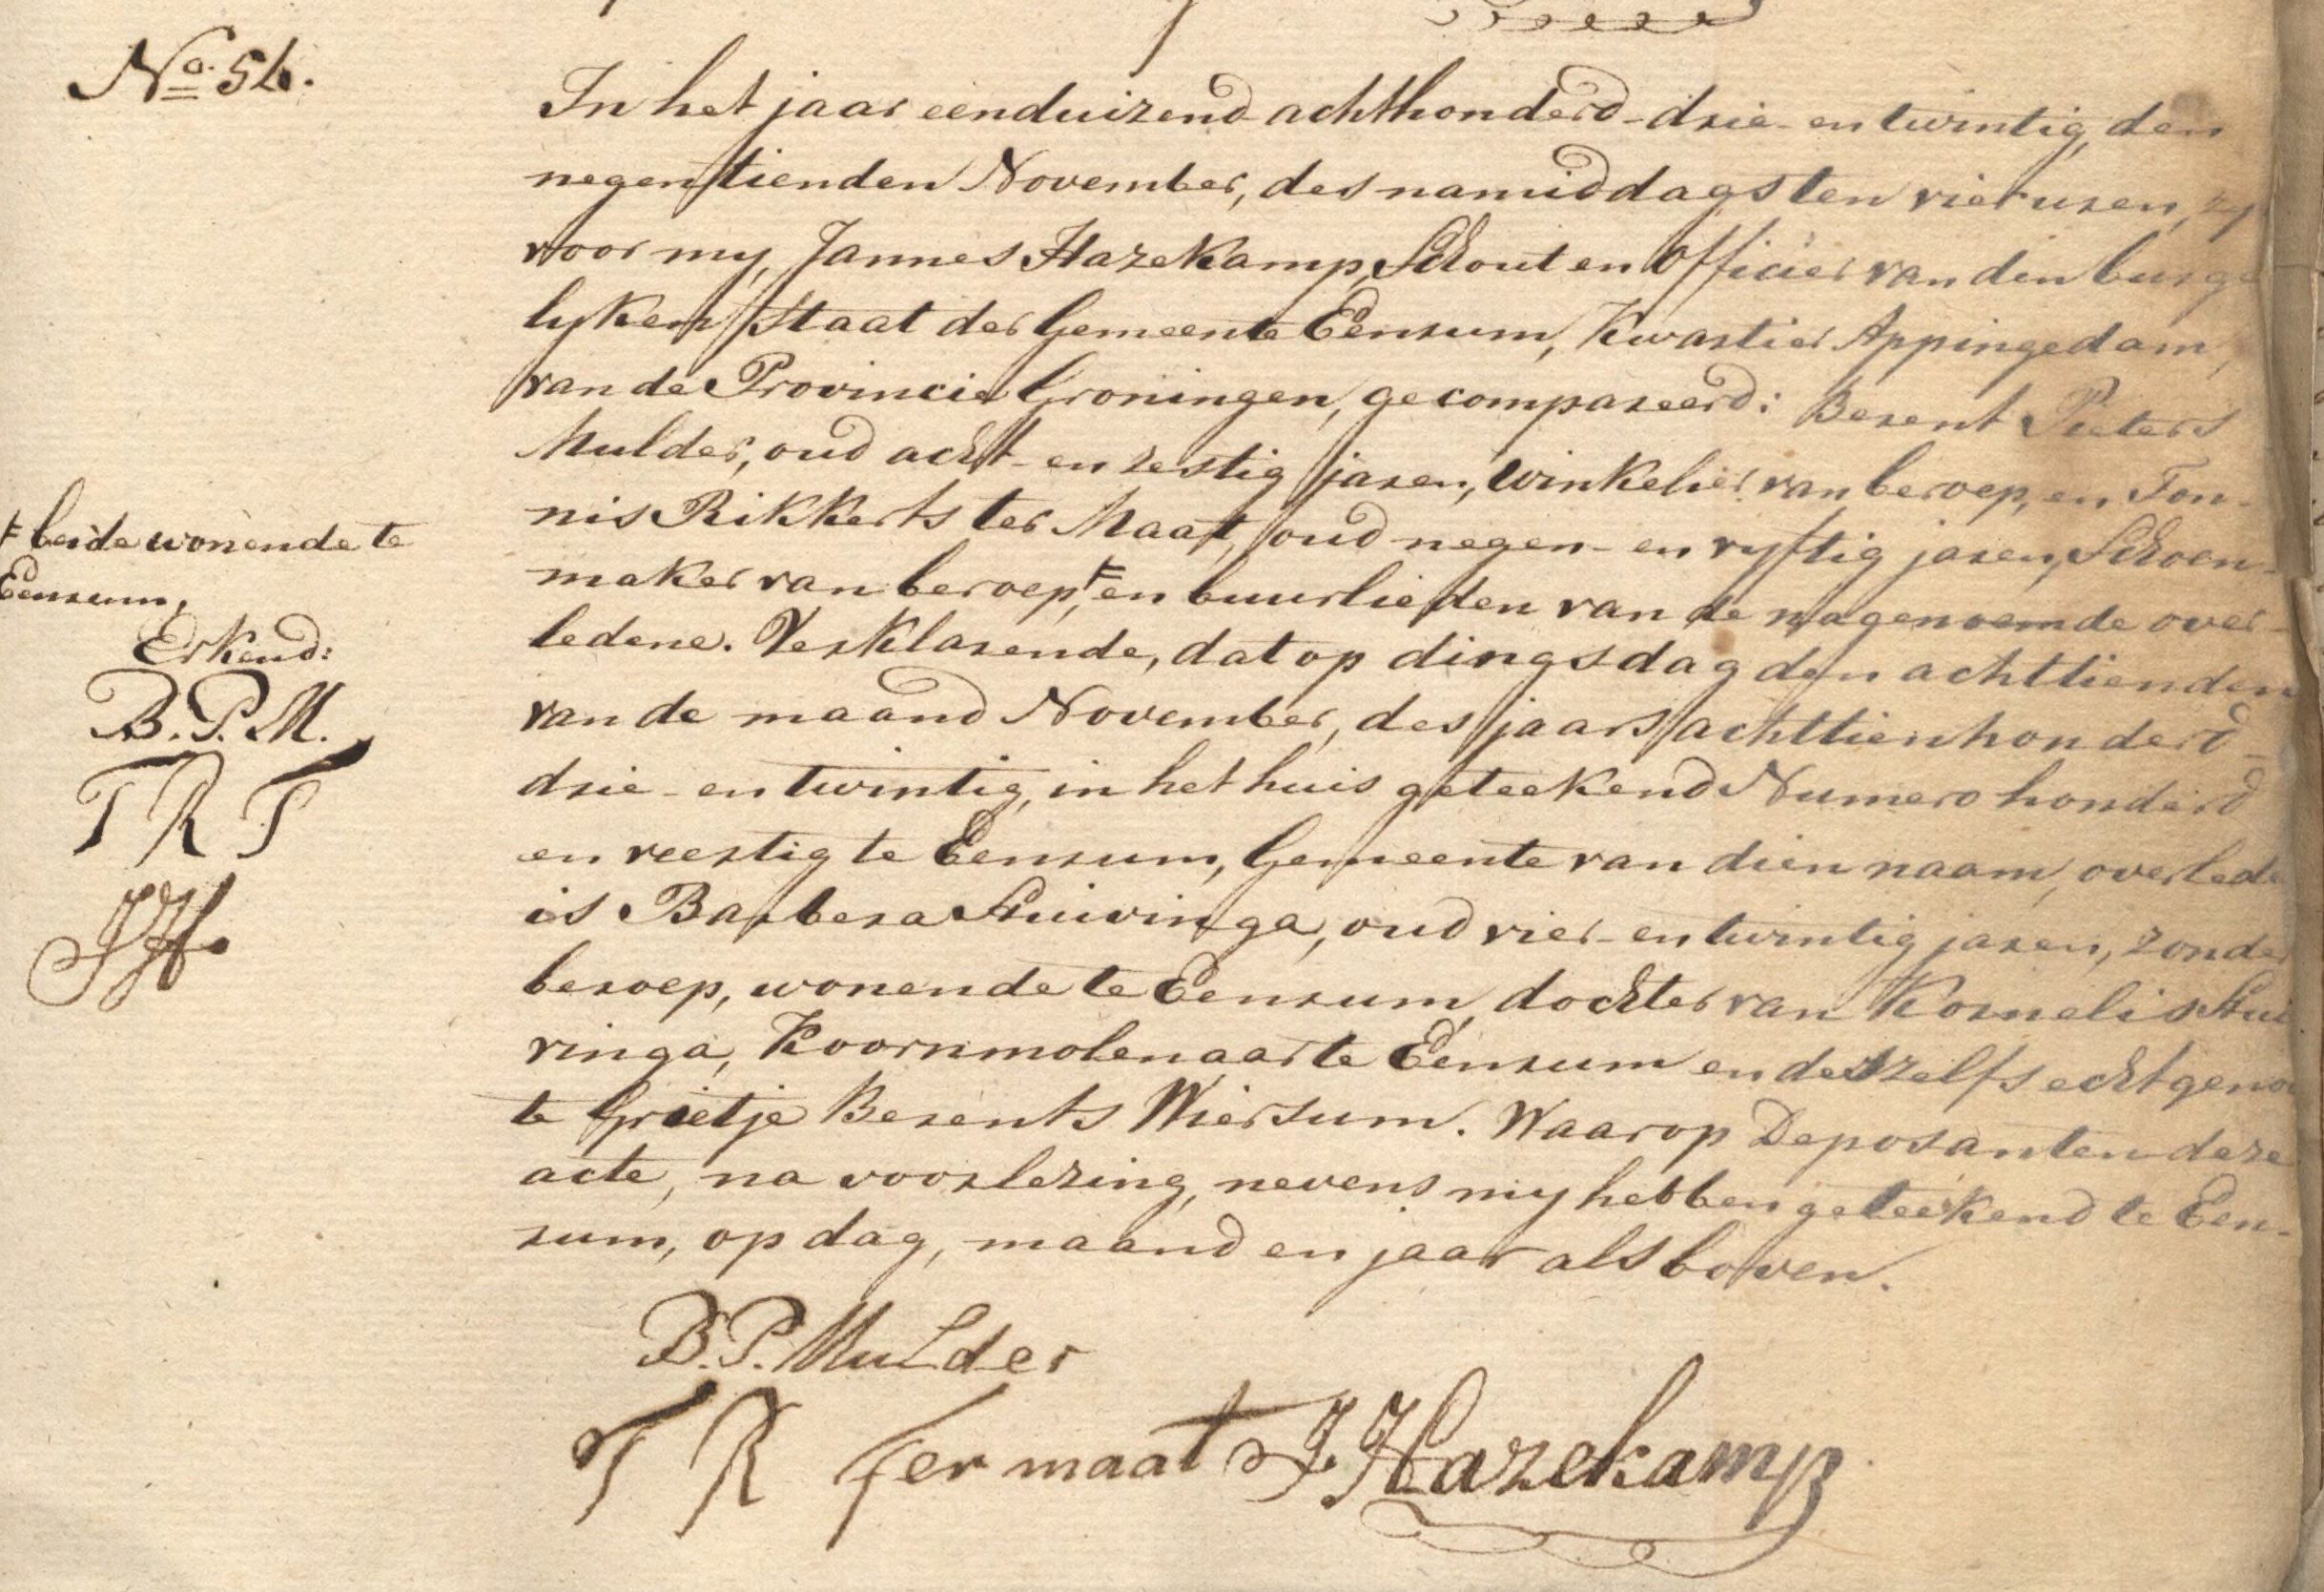 No. 54.
In het jaar eenduizend achthonderd-drie-en twintig, den
negentienden November, des namiddags ten vier uren, zy
voor my, Jannes Hazekamp, Schout en Officier van den burge
lyken Staat der Gemeente Eenrum, Kwartier Appingedam,
van de Provincie Groningen, gecompareerd: Berent Pieters
Mulder, oud acht-en zestig jaren, winkelier van beroep, en Ton-
nis Rikkerts ter Maat, oud negen-en vyftig jaren, Schoen-
maker van beroep,⹀ en buurlieden van de nagenoemde over-
ledene. Verklarende, dat op dingsdag den achttienden
van de maand November, des jaars achttienhonderd-
drie-en twintig, in het huis geteekend Numero honderd
en veertig te Eenrum, Gemeente van dien naam, overlede
is Barbera Huiringa, oud vier-en twintig jaren, zonder
beroep, wonende te Eenrum, dochter van Kornelis Hui
ringa, Koornmolenaar te Eenrum en deszelfs echtgeno
te Grietje Berents Wiersum. Waarop Deposanten deze
acte, na voorlezing, nevens my hebben geteekend te Een-
rum, op dag, maand en jaar als boven.
⹀ beide wonende te
Eenrum,
Erkend:
B. P. M.
T R T
JH.
B. P. Mulder
T R Ter maat J Hazekamp